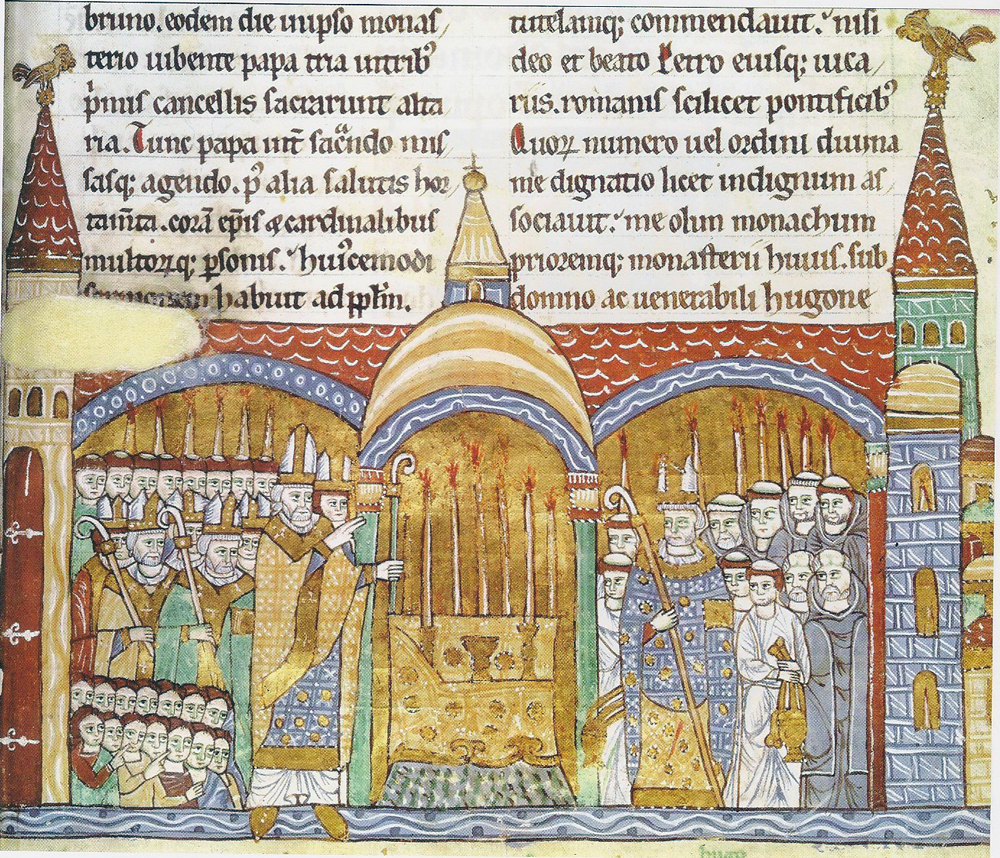 bruno. eodem die inipso monas/
terio iubente papa tria intrib᾽
p̍mis cancellis sacrarunt alta
ria. Tunc papa int̄ sacͣndo mis/
sasq; agendo. p̄ alia salutis hor/
tam̄ta. corā ep̄is & cardinalibus
multorꝝq; ꝑsonis. hui᾽cemodi
sermonem habuit ad pp̄lm.
tutelamq; commendauit. nisi
deo et beato Petro eiusq; uica/
riis. romanis scilicet pontificib᾽
Quorꝝ numero uel ordini diuina
me dignatio licet indignum as/
sociauit. me olim monachum
prioremq; monasterii huius. sub
domno ac uenerabili hugone